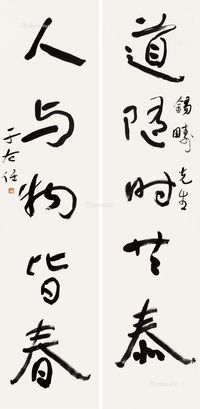 道随时共泰
錫疇先生
人与物皆春
于右任